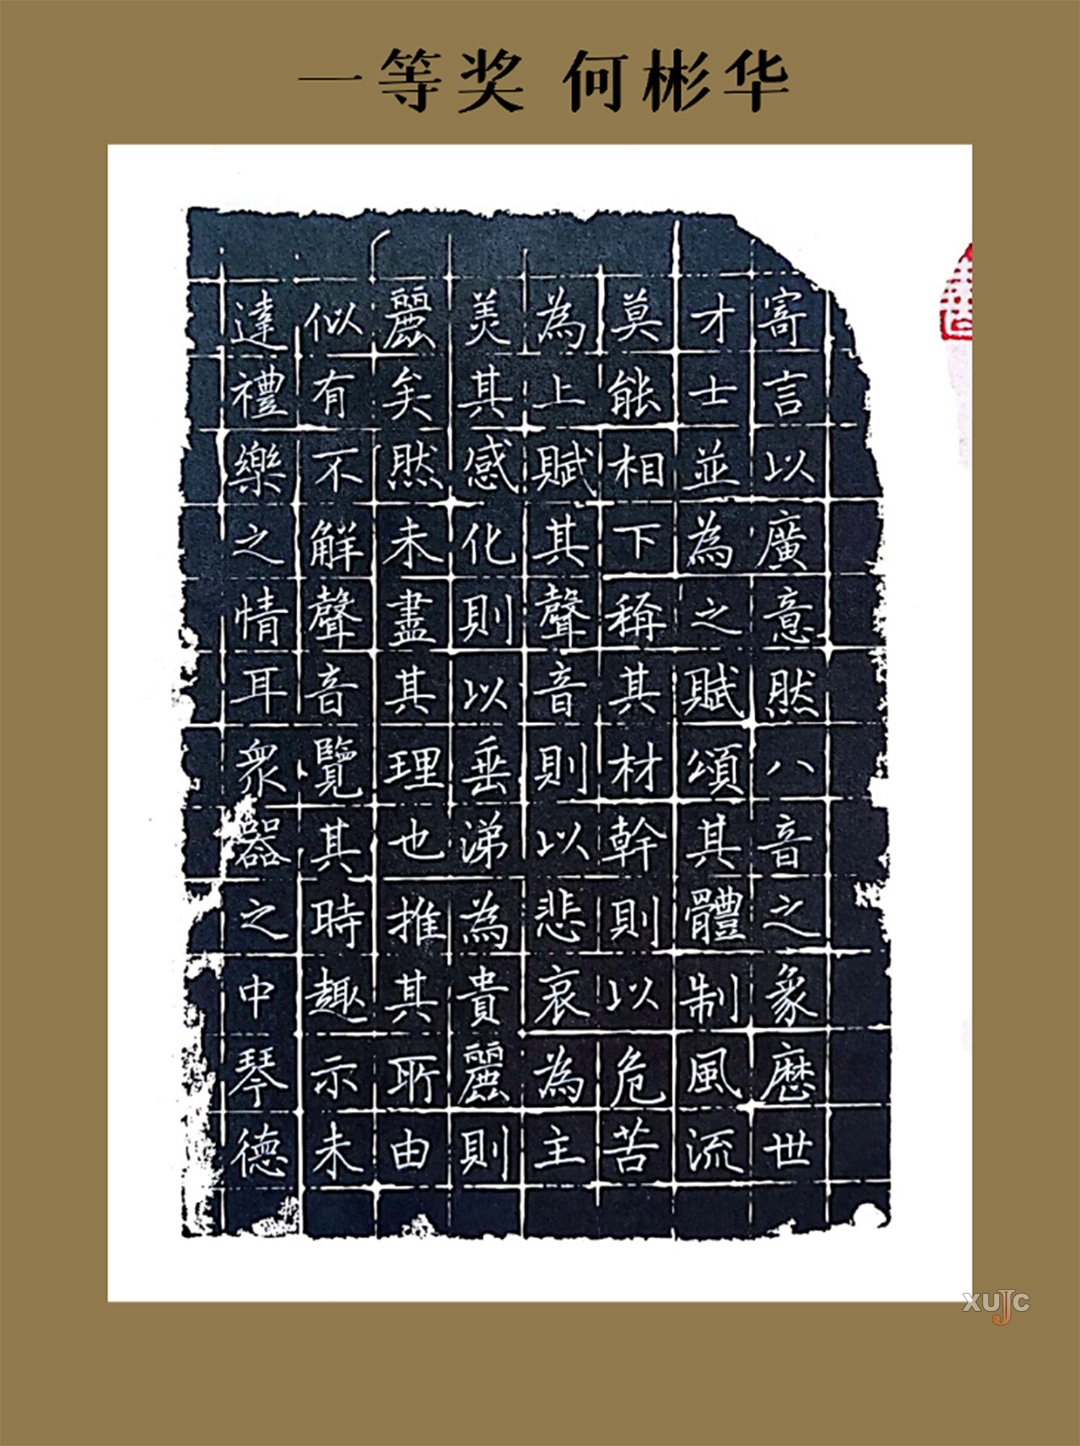 一等奖 何彬华
寄言以廣意然八音之象歷世
才士並為之賦頌其體制風流
莫能相下稱其材幹則以危苦
為上賦其聲音則以悲哀為主
美其感化則以垂涕為貴麗則
麗矣然未盡其理也推其所由
似有不解聲音覽其時趣示未
達禮樂之情耳衆器之中琴德
XUJC